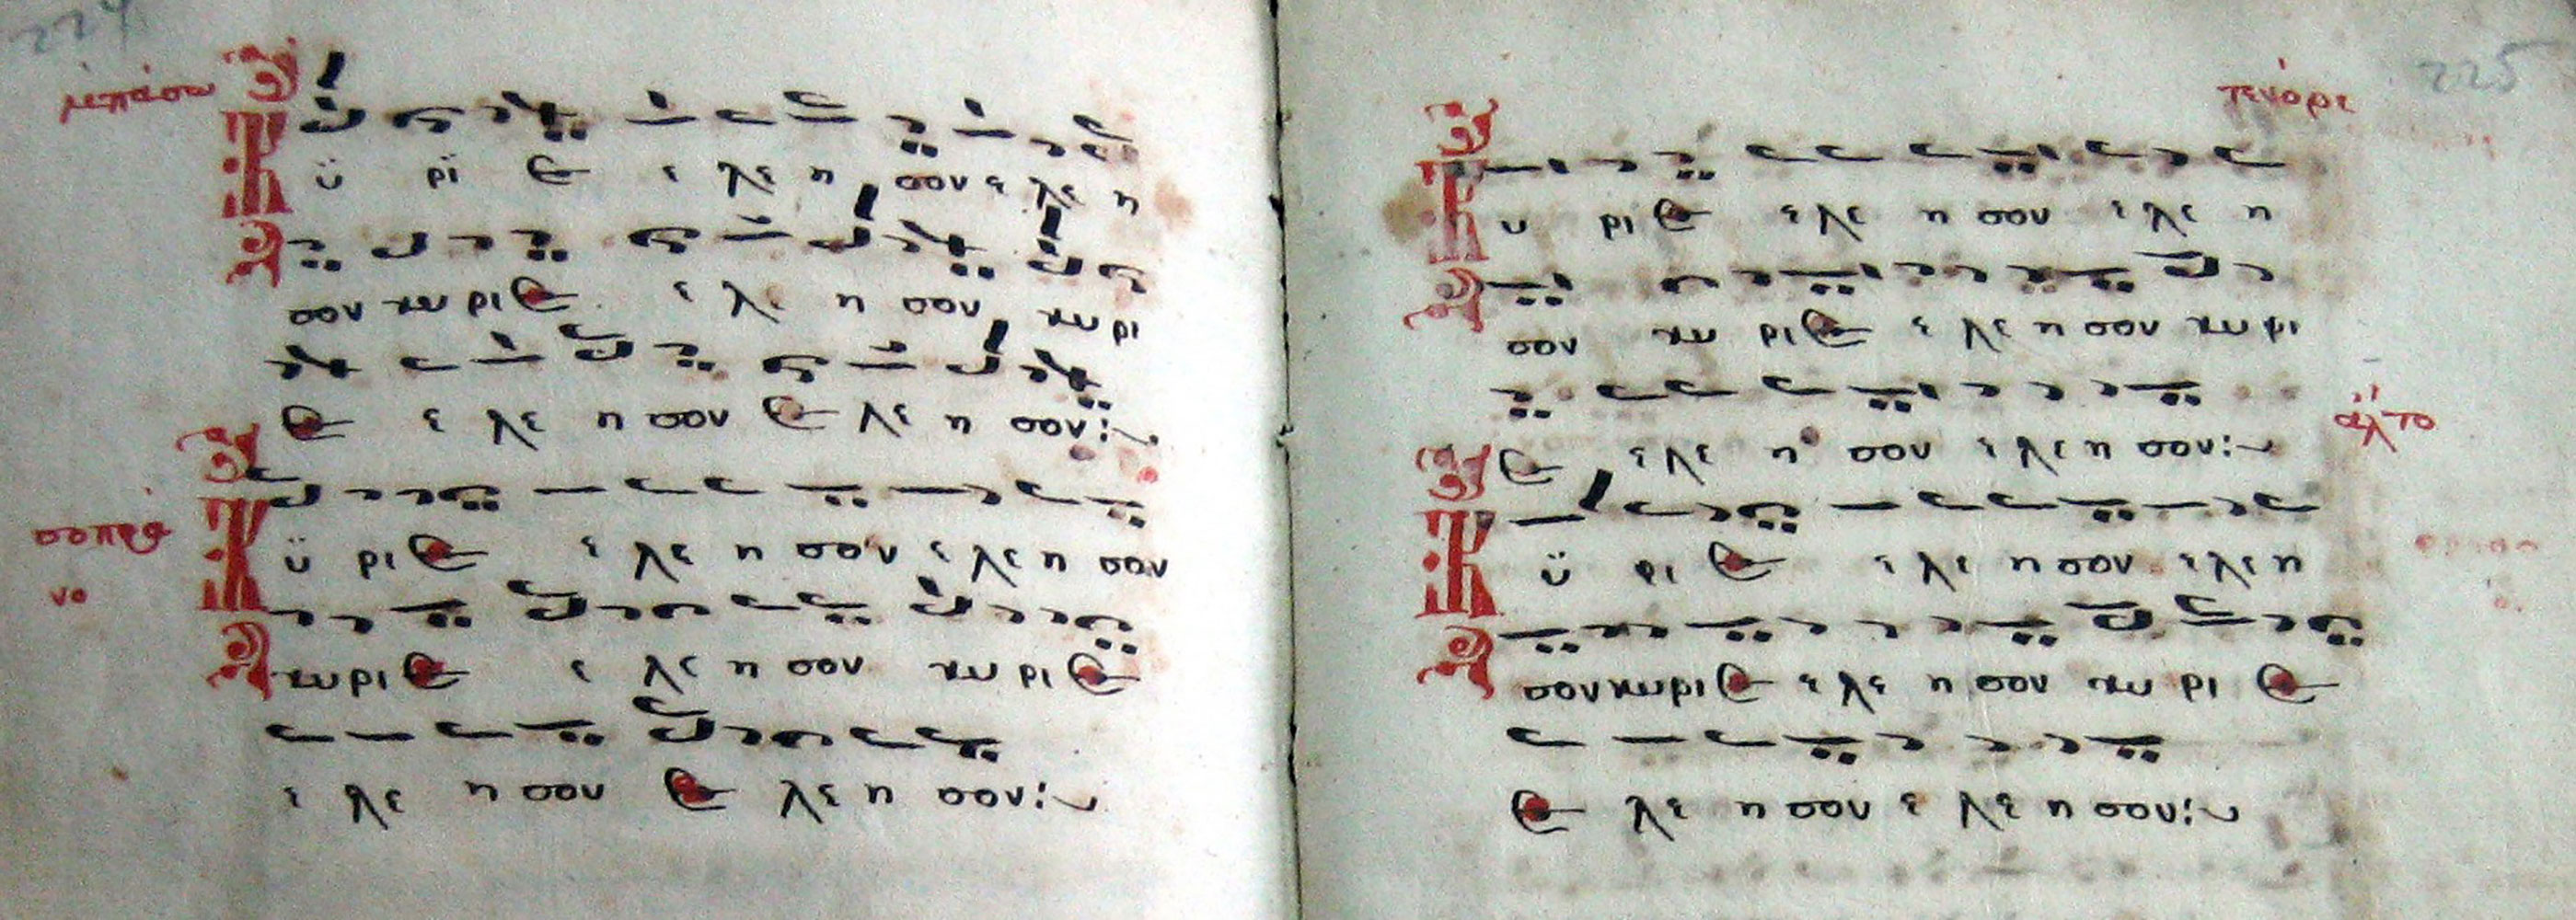 224
μπάσω
Κϋ ρϊ ε ε λε η σον ε λε η
σον κυ ρι ε ε λε η σον κυ ρι
ε ε λε η σον ε λε η σον:~
σοπρα
νο
Κϋ ρι ε ε λε η σον ε λε η σον
κυ ρι ε ε λε η σον κυ ρι ε
ε λε η σον ε λε η σον:~
225
τενόρε
Κυ ρι ε ε λε η σον ε λε η
σον κυ ρι ε ε λε η σον κυ ρι
ε ε λε η σον ε λε η σον:~
άλτο
Κϋ ρι ε ε λε η σον ε λε η
σον κυ ρι ε ε λε η σον κυ ρι ε
ε λε η σον ε λε η σον:~